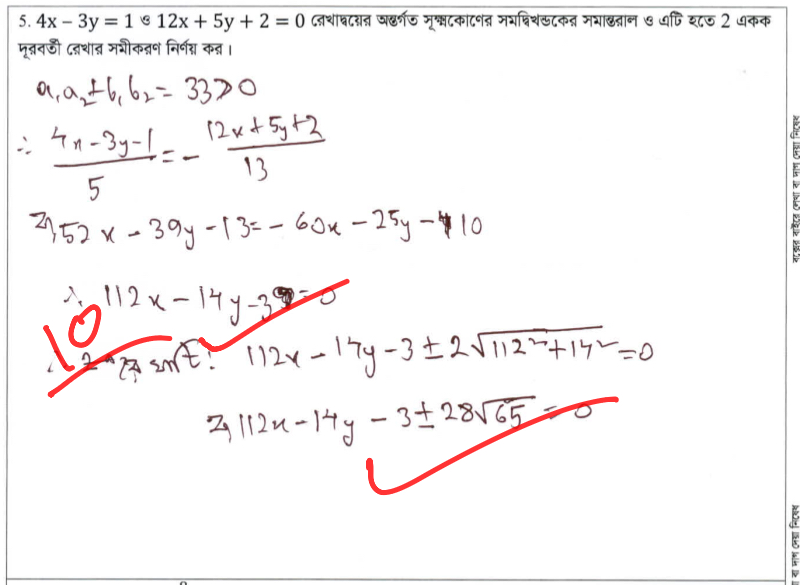 5. 4x − 3y = 1 ও 12x + 5y + 2 = 0 রেখাদ্বয়ের অন্তর্গত সূক্ষ্মকোণের সমদ্বিখন্ডকের সমান্তরাল ও এটি হতে 2 একক
দূরবর্তী রেখার সমীকরণ নির্ণয় কর।
a₁a₂+b₁b₂ = 33>0
∴ (4x−3y−1)/5 = −(12x+5y+2)/13
⇒ 52x − 39y − 13 = − 60x − 25y − 10
∴ 112x − 14y − 3 = 0
10
112x − 14y − 3 ± 2√(112²+14²) = 0
⇒ 112x − 14y − 3 ± 28√65 = 0
বক্সের বাইরে লেখা বা দাগ দেয়া নিষেধ
বা দাগ দেয়া নিষেধ